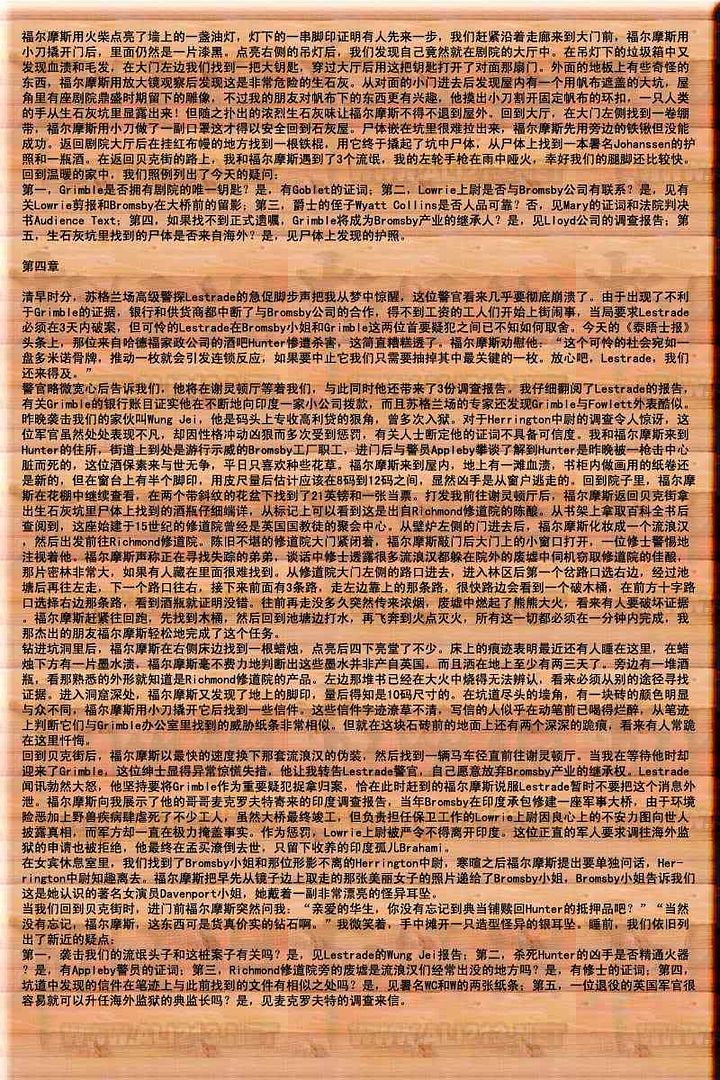 福尔摩斯用火柴点亮了墙上的一盏油灯，灯下的一串脚印证明有人先来一步，我们赶紧沿着走廊来到大门前，福尔摩斯用
小刀撬开门后，里面仍然是一片漆黑。点亮右侧的吊灯后，我们发现自己竟然就在剧院的大厅中。在吊灯下的垃圾箱中又
发现血渍和毛发，在大门左边我们找到一把大钥匙，穿过大厅后用这把钥匙打开了对面那扇门。外面的地板上有些奇怪的
东西，福尔摩斯用放大镜观察后发现这是非常危险的生石灰。从对面的小门进去后发现屋内有一个用帆布遮盖的大坑，屋
角里有座剧院鼎盛时期留下的雕像，不过我的朋友对帆布下的东西更有兴趣，他摸出小刀割开固定帆布的环扣，一只人类
的手从生石灰坑里显露出来！但随之扑出的浓烈生石灰味让福尔摩斯不得不退到屋外。回到大厅，在大门左侧找到一卷绷
带，福尔摩斯用小刀做了一副口罩这才得以安全回到石灰屋。尸体嵌在坑里很难拉出来，福尔摩斯先用旁边的铁锹但没能
成功。返回剧院大厅后在挂红布幔的地方找到一根铁棍，用它终于撬起了坑中尸体，从尸体上找到一本署名Johanssen的护
照和一瓶酒。在返回贝克街的路上，我和福尔摩斯遇到了3个流氓，我的左轮手枪在雨中哑火，幸好我们的腿脚还比较快。
回到温暖的家中，我们照例列出了今天的疑问：
第一，Grimble是否拥有剧院的唯一钥匙？是，有Goblet的证词；第二，Lowrie上尉是否与Bromsby公司有联系？是，见有
关Lowrie剪报和Bromsby在大桥前的留影；第三，爵士的侄子Wyatt Collins是否人品可靠？否，见Mary的证词和法院判决
书Audience Text；第四，如果找不到正式遗嘱，Grimble将成为Bromsby产业的继承人？是，见Lloyd公司的调查报告；第
五，生石灰坑里找到的尸体是否来自海外？是，见尸体上发现的护照。
第四章
清早时分，苏格兰场高级警探Lestrade的急促脚步声把我从梦中惊醒，这位警官看来几乎要彻底崩溃了。由于出现了不利
于Grimble的证据，银行和供货商都中断了与Bromsby公司的合作，得不到工资的工人们开始上街闹事，当局要求Lestrade
必须在3天内破案，但可怜的Lestrade在Bromsby小姐和Grimble这两位首要疑犯之间已不知如何取舍。今天的《泰晤士报》
头条上，那位来自哈德福家政公司的酒吧Hunter惨遭杀害，这简直糟糕透了。福尔摩斯劝慰他：“这个可怜的社会宛如一
盘多米诺骨牌，推动一枚就会引发连锁反应，如果要中止它我们只需要抽掉其中最关键的一枚。放心吧，Lestrade，我们
还来得及。”
警官略微宽心后告诉我们，他将在谢灵顿厅等着我们，与此同时他还带来了3份调查报告。我仔细翻阅了Lestrade的报告，
有关Grimble的银行账目证实他在不断地向印度一家小公司拨款，而且苏格兰场的专家还发现Grimble与Fowlett外表酷似。
昨晚袭击我们的家伙叫Wung Jei，他是码头上专收高利贷的狠角，曾多次入狱。对于Herrington中尉的调查令人惊讶，这
位军官虽然处处表现不凡，却因性格冲动凶狠而多次受到惩罚，有关人士断定他的证词不具备可信度。我和福尔摩斯来到
Hunter的住所，街道上到处是游行示威的Bromsby工厂职工，进门后与警员Appleby攀谈了解到Hunter是昨晚被一枪击中心
脏而死的，这位酒保素来与世无争，平日只喜欢种些花草。福尔摩斯来到屋内，地上有一滩血渍，书柜内做画用的纸卷还
是新的，但在窗台上有半个脚印，用皮尺量后估计应该在8码到12码之间，显然凶手是从窗户逃走的。回到院子里，福尔摩
斯在花棚中继续查看，在两个带斜纹的花盆下找到了21英镑和一张当票。打发我前往谢灵顿厅后，福尔摩斯返回贝克街拿
出生石灰坑里尸体上找到的酒瓶仔细端详，从标记上可以看到这是出自Richmond修道院的陈酸。从书架上拿取百科全书后
查阅到，这座始建于15世纪的修道院曾经是英国国教徒的聚会中心。从壁炉左侧的门进去后，福尔摩斯化妆成一个流浪汉
，然后出发前往Richmond修道院。陈旧不堪的修道院大门紧闭着，福尔摩斯敲门后大门上的小窗口打开，一位修士警惕地
注视着他。福尔摩斯声称正在寻找失踪的弟弟，谈话中修士透露很多流浪汉都躲在院外的废墟中伺机窃取修道院的佳酸，
那片密林非常大，如果有人藏在里面很难找到。从修道院大门左侧的路口进去，进入林区后第一个岔路口选右边，经过池
塘后再往左走，下一个路口往右，接下来前面有3条路，走左边靠上的那条路，很快路边会看到一个破木桶，在前方十字路
口选择右边那条路，看到酒瓶就证明没错。往前再走没多久突然传来浓烟，废墟中燃起了熊熊大火，看来有人要破坏证据
。福尔摩斯赶紧往回跑，先找到木桶，然后回到池塘边打水，再飞奔到火点灭火，所有这一切都必须在一分钟内完成，我
那杰出的朋友福尔摩斯轻松地完成了这个任务。
钻进坑洞里后，福尔摩斯在右侧床边找到一根蜡烛，点亮后四下亮堂了不少。床上的痕迹表明最近还有人睡在这里，在蜡
烛下方有一片墨水渍，福尔摩斯毫不费力地判断出这些墨水并非产自英国，而且洒在地上至少有两三天了。旁边有一堆酒
瓶，看那熟悉的外形就知道是Richmond修道院的产品。左边那堆书已经在大火中烧得无法辨认，看来必须从别的途径寻找
证据。进入洞窟深处，福尔摩斯又发现了地上的脚印，量后得知是10码尺寸的。在坑道尽头的墙角，有一块砖的颜色明显
与众不同，福尔摩斯用小刀撬开它后找到一些信件。这些信件字迹潦草不清，写信的人似乎在动笔前已喝得烂醉，从笔迹
上判断它们与Grimble办公室里找到的威胁纸条非常相似。但就在这块石砖前的地面上还有两个深深的跪痕，看来有人常跪
在这里忏悔。
回到贝克街后，福尔摩斯以最快的速度换下那套流浪汉的伪装，然后找到一辆马车径直前往谢灵顿厅。当我在等待他时却
迎来了Grimble，这位绅士显得异常惊慌失措，他让我转告Lestrade警官，自己愿意放弃Bromsby产业的继承权。Lestrade
闻讯勃然大怒，他坚持要将Grimble作为重要疑犯捉拿归案，恰在此时赶到的福尔摩斯说服Lestrade暂时不要把这个消息外
泄。福尔摩斯向我展示了他的哥哥麦克罗夫特寄来的印度调查报告，当年Bromsby在印度承包修建一座军事大桥，由于环境
险恶加上野兽疾病肆虐死了不少工人，虽然大桥最终竣工，但负责担任保卫工作的Lowrie上尉因良心上的不安力图向世人
披露真相，而军方却一直在极力掩盖事实。作为惩罚，Lowrie上尉被严令不得离开印度。这位正直的军人要求调往海外监
狱的申请也被拒绝，他最终在孟买潦倒去世，只留下收养的印度孤儿Brahami。
在女宾休息室里，我们找到了Bromsby小姐和那位形影不离的Herrington中尉，寒暄之后福尔摩斯提出要单独问话，Her-
rington中尉知趣离去。福尔摩斯把早先从镜子边上取走的那张美丽女子的照片递给了Bromsby小姐，Bromsby小姐告诉我们
这是她认识的著名女演员Davenport小姐，她戴着一副非常漂亮的怪异耳坠。
当我们回到贝克街时，进门前福尔摩斯突然问我：“亲爱的华生，你没有忘记到典当铺赎回Hunter的抵押品吧？”“当然
没有忘记，福尔摩斯，这东西可是货真价实的钻石啊。”我微笑着，手中摊开一只造型怪异的银耳坠。睡前，我们依旧列
出了新近的疑点：
第一，袭击我们的流氓头子和这桩案子有关吗？是，见Lestrade的Wung Jei报告；第二，杀死Hunter的凶手是否精通火器
？是，有Appleby警员的证词；第三，Richmond修道院旁的废墟是流浪汉们经常出没的地方吗？是，有修士的证词；第四，
坑道中发现的信件在笔迹上与此前找到的文件有相似之处吗？是，见署名WC和W的两张纸条；第五，一位退役的英国军官很
容易就可以升任海外监狱的典监长吗？是，见麦克罗夫特的调查来信。